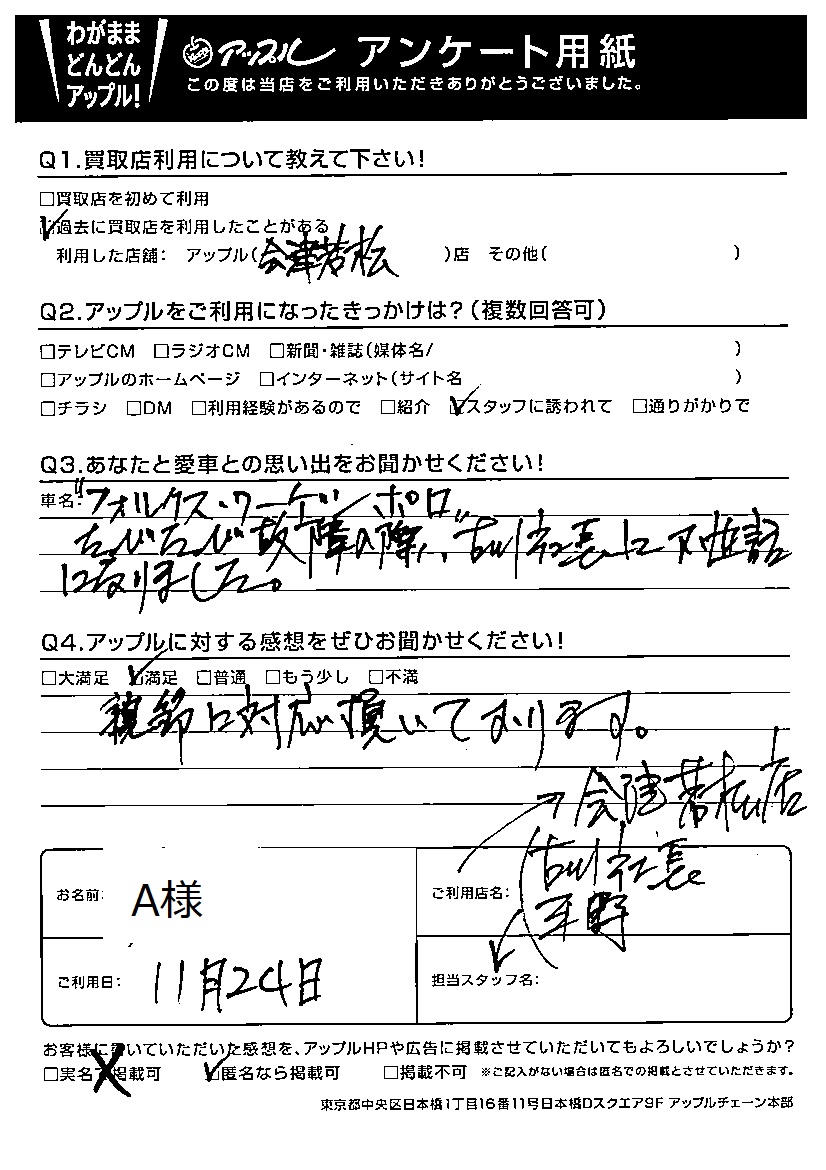 わがまま
どんどん
アップル!
アップル アンケート用紙
この度は当店をご利用いただきありがとうございました。
Q1.買取店利用について教えて下さい!
□買取店を初めて利用
☑過去に買取店を利用したことがある
利用した店舗: アップル(会津若松)店 その他( )
Q2.アップルをご利用になったきっかけは?(複数回答可)
□テレビCM □ラジオCM □新聞・雑誌(媒体名/ )
□アップルのホームページ □インターネット(サイト名 )
□チラシ □DM □利用経験があるので □紹介 ☑スタッフに誘われて □通りがかりで
Q3.あなたと愛車との思い出をお聞かせください!
車名:"フォルクス・ワーゲン ポロ"
たびたび故障の際、古川社長にお世話
になりました。
Q4.アップルに対する感想をぜひお聞かせください!
□大満足 ☑満足 □普通 □もう少し □不満
親切に対応頂いております。
→会津若松店
お名前: A様
ご利用店名: 古川社長
平野
ご利用日: 11月24日
担当スタッフ名:
お客様に書いていただいた感想を、アップルHPや広告に掲載させていただいてもよろしいでしょうか?
□実名で掲載可 ☑匿名なら掲載可 □掲載不可 ※ご記入がない場合は匿名での掲載とさせていただきます。
東京都中央区日本橋1丁目16番11号日本橋Dスクエア9F アップルチェーン本部